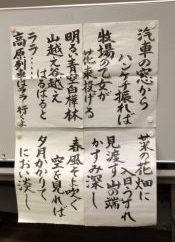 汽車の窓から
ハンケチ振れば
牧場の乙女が
花束投げる
明るい青空白樺林
山越え谷越え
はるばると
ララ……
高原列車はララ行くよ
菜の花畑に
入日うすれ
見渡す山の端
かすみ深し
春風そよふく
空を見れば
夕月かかりて
におい淡し